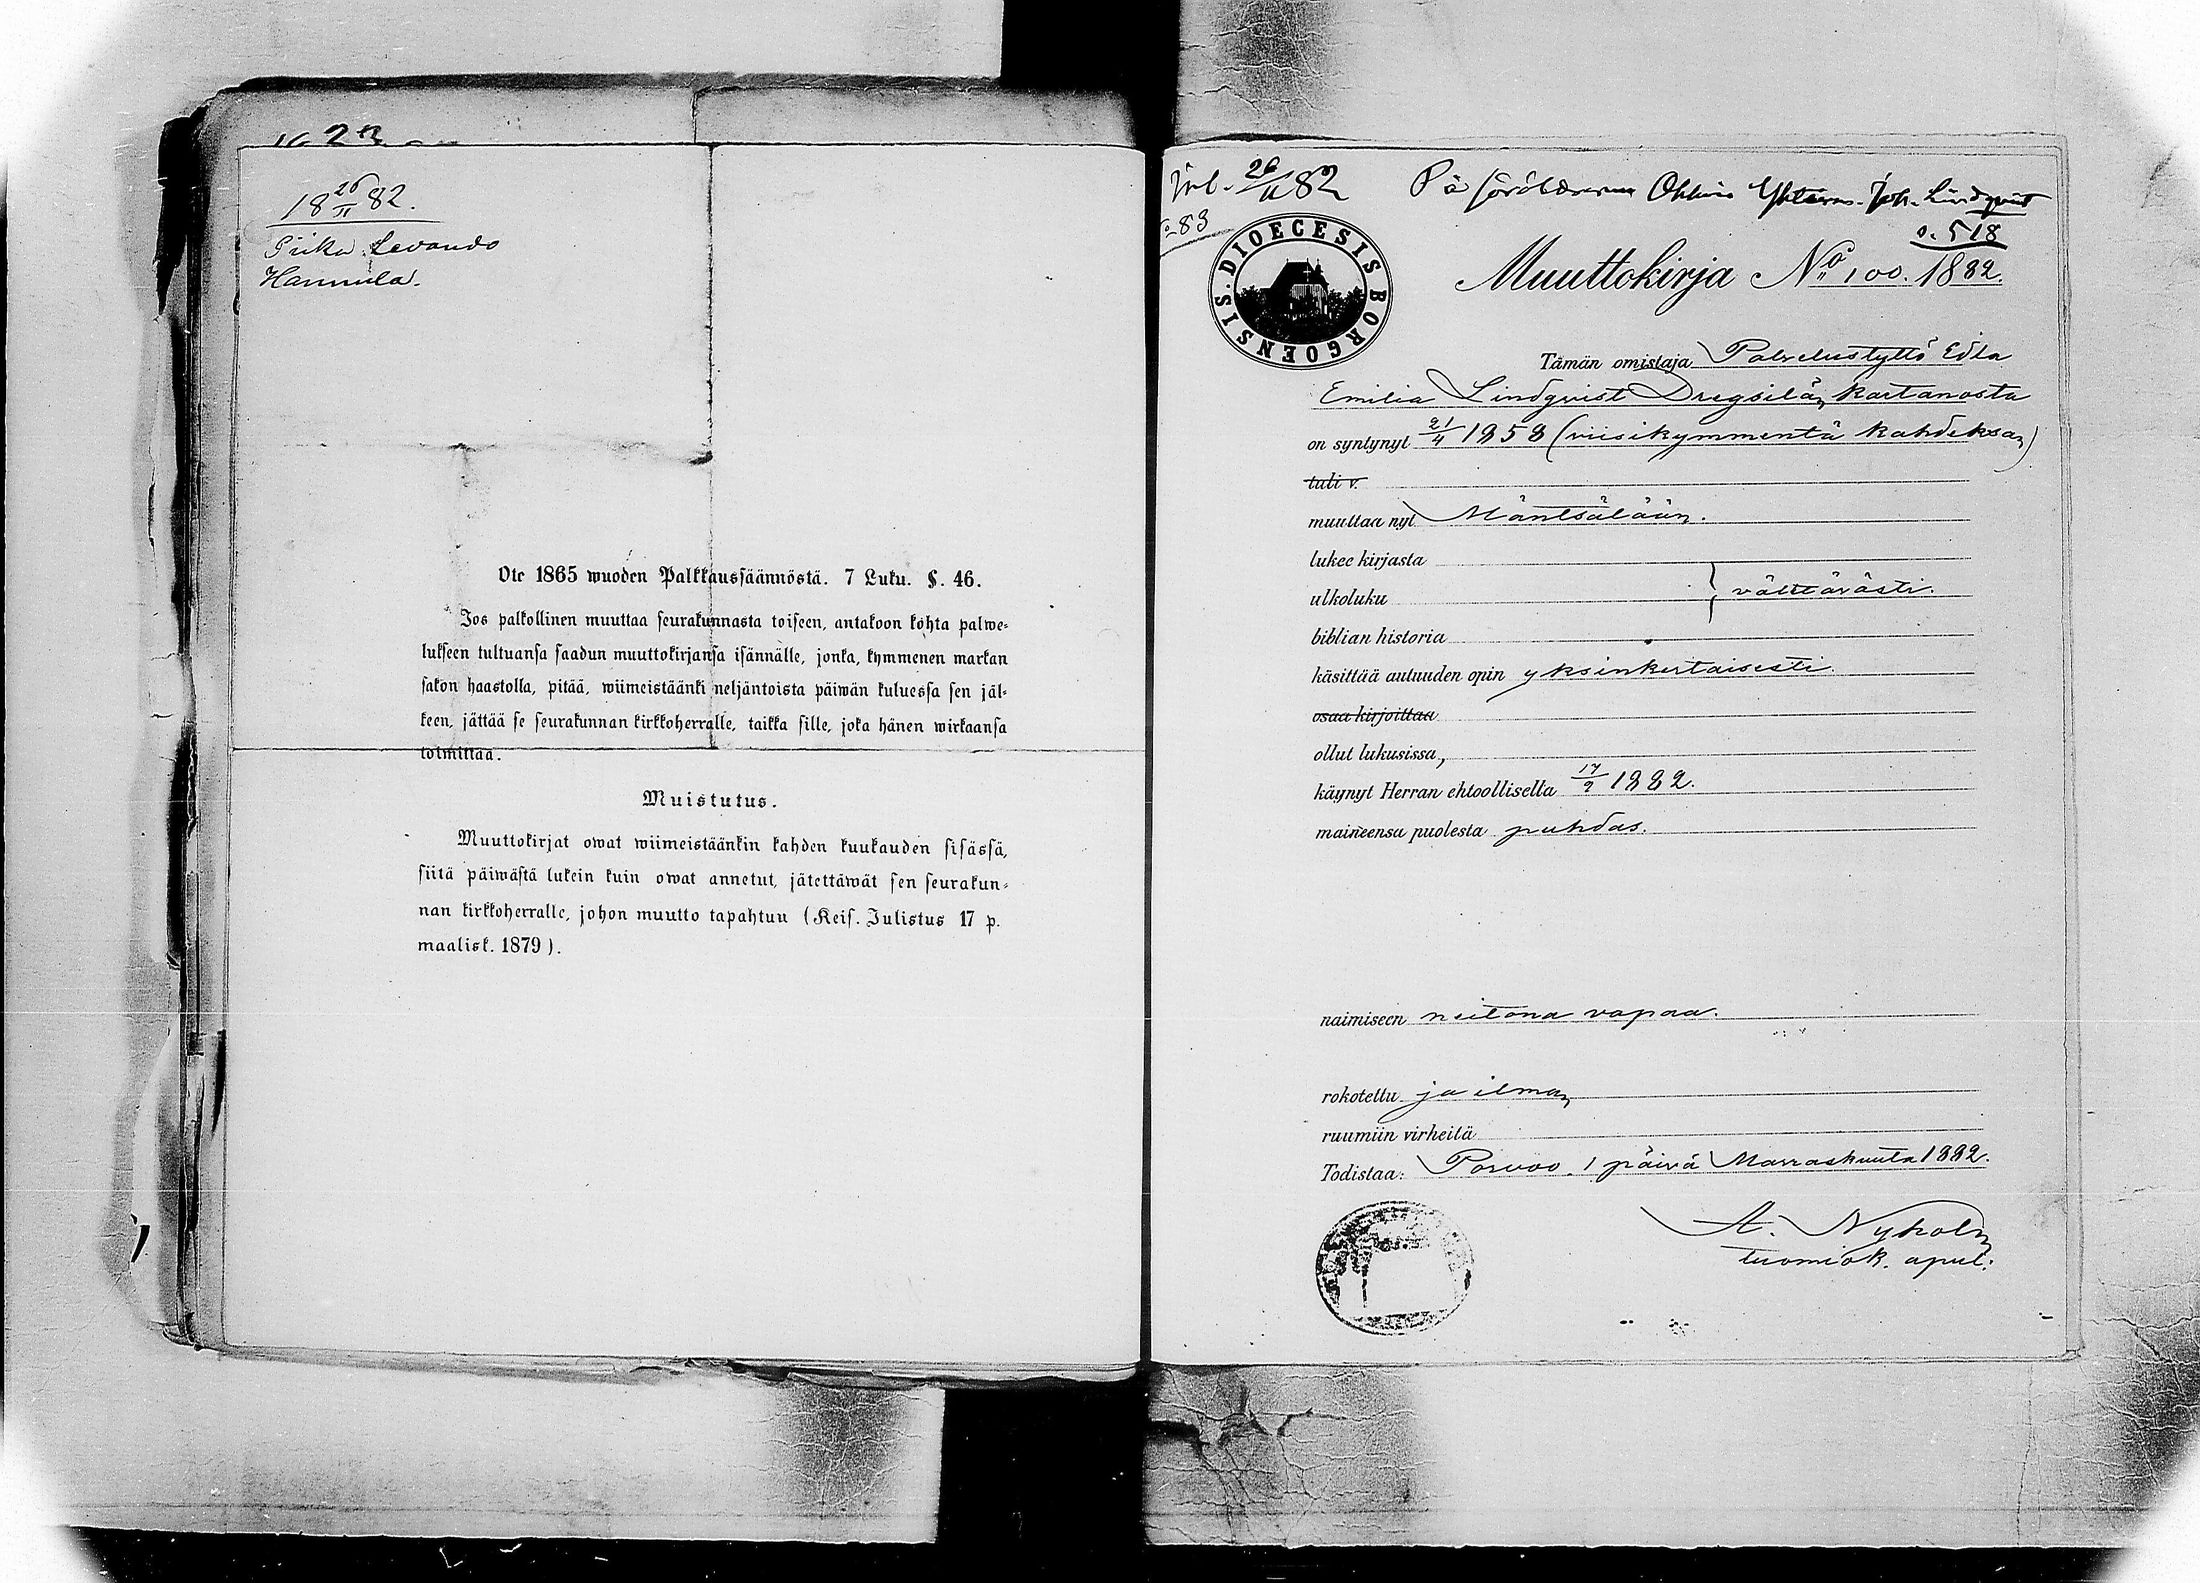 18 26/11 82.
Piika Levando
Hannula.
Ote 1865 wuoden Palkkaussäännöstä. 7 Luku. §. 46.
Jos palkollinen muuttaa seurakunnasta toiseen, antakoon kohta palwe-
lukseen tultuansa saadun muuttokirjansa isännälle, jonka, kymmenen markan
sakon haastolla, pitää, wiimeistäänki neljäntoista päiwän kuluessa sen jäl-
keen, jättää se seurakunnan kirkkoherralle, taikka sille, joka hänen wirkaansa
toimittaa.
Muistutus.
Muuttokirjat owat wiimeistäänkin kahden kuukauden sisässä,
siitä päiwästä lukein kuin owat annetut, jätettäwät sen seurakun-
nan kirkkoherralle, johon muutto tapahtuu (Keis. Julistus 17 p.
maalisk. 1879).
Inl. 26/11 82
83
På Joh. Lindqvist
s. 518
DIOECESIS BORGOENSIS.
Muuttokirja No 100. 1882.
Tämän omistaja Palvelustyttö Edla
Emilia Lindqvist Drägsilän kartanosta
on syntynyt 21/4 1858 (viisikymmentä kahdeksan)
tuli v.
muuttaa nyt Mäntsälään.
lukee kirjasta
ulkoluku } välttävästi.
biblian historia
käsittää autuuden opin yksinkertaisesti.
osaa kirjoittaa
ollut lukusissa,
käynyt Herran ehtoollisella 17/9 1882.
maineensa puolesta puhdas.
naimiseen neitona vapaa.
rokotettu ja ilman
ruumiin virheitä
Todistaa: Porvoo 1 päivä Marraskuuta 1882.
A. Nyholm
tuomiok. apul.